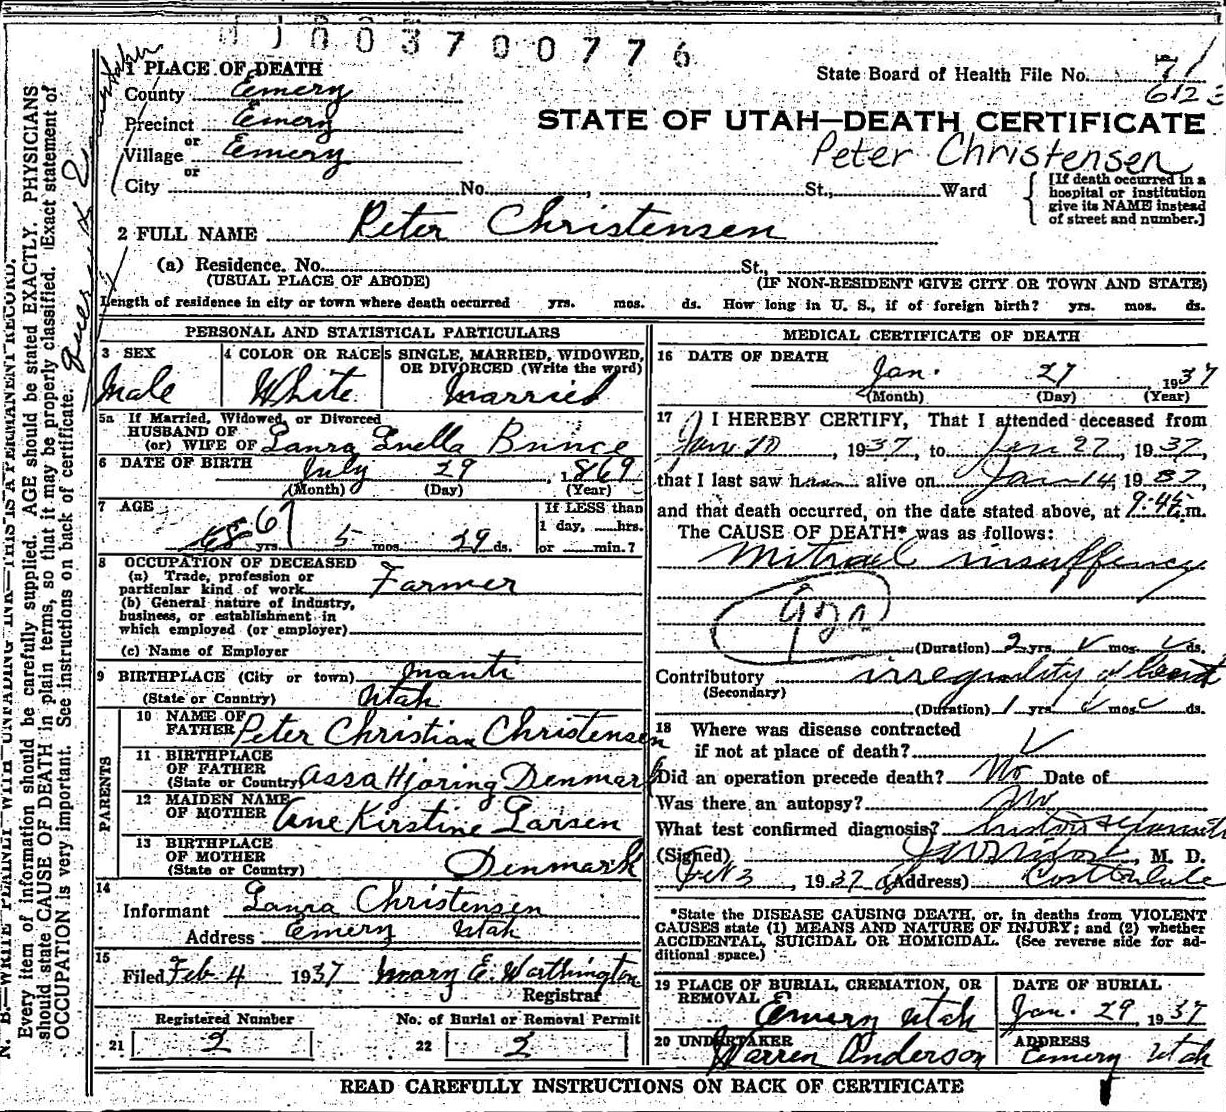 0 J 0 0 3 7 0 0 7 7 6
1 PLACE OF DEATH
State Board of Health File No. 71
6123
County Emery
Precinct Emery
or
Village Emery
or
City No. , St., Ward
STATE OF UTAH—DEATH CERTIFICATE
Peter Christensen
[If death occurred in a
hospital or institution
give its NAME instead
of street and number.]
2 FULL NAME Peter Christensen
(a) Residence. No. St.,
(USUAL PLACE OF ABODE) (IF NON-RESIDENT GIVE CITY OR TOWN AND STATE)
Length of residence in city or town where death occurred yrs. mos. ds. How long in U. S., if of foreign birth? yrs. mos. ds.
PERSONAL AND STATISTICAL PARTICULARS
3 SEX 4 COLOR OR RACE 5 SINGLE, MARRIED, WIDOWED,
OR DIVORCED (Write the word)
Male White Married
5a If Married, Widowed, or Divorced
HUSBAND OF
(or) WIFE OF Laura Luella Bunce
6 DATE OF BIRTH July 29, 1869
(Month) (Day) (Year)
7 AGE
If LESS than
1 day, hrs.
or min.?
68 67 yrs. 5 mos. 29 ds.
8 OCCUPATION OF DECEASED
(a) Trade, profession or
particular kind of work Farmer
(b) General nature of industry,
business, or establishment in
which employed (or employer)
(c) Name of Employer
9 BIRTHPLACE (City or town) Manti
(State or Country) Utah
PARENTS
10 NAME OF
FATHER Peter Christian Christensen
11 BIRTHPLACE
OF FATHER
(State or Country) Assa Hjoring Denmark
12 MAIDEN NAME
OF MOTHER Ane Kirstine Larsen
13 BIRTHPLACE
OF MOTHER
(State or Country) Denmark
14
Informant Laura Christensen
Address Emery Utah
15
Filed Feb 4 1937 Mary E. Worthington
Registrar
Registered Number No. of Burial or Removal Permit
21 2 22 2
MEDICAL CERTIFICATE OF DEATH
16 DATE OF DEATH
Jan. 27 1937
(Month) (Day) (Year)
17 I HEREBY CERTIFY, That I attended deceased from
Jan 10, 1937, to Jan 27, 1937,
that I last saw h alive on Jan 14, 1937,
and that death occurred, on the date stated above, at 9:45 m.
The CAUSE OF DEATH* was as follows:
Mitral insuffency
92a
(Duration) 2 yrs. mos. ds.
Contributory irregulity of heart
(Secondary)
(Duration) 1 yrs. mos. ds.
18 Where was disease contracted
if not at place of death?
Did an operation precede death? No Date of
Was there an autopsy? No
What test confirmed diagnosis?
(Signed) , M. D.
Feb 3, 1937 (Address) Castledale
*State the DISEASE CAUSING DEATH, or, in deaths from VIOLENT
CAUSES state (1) MEANS AND NATURE OF INJURY; and (2) whether
ACCIDENTAL, SUICIDAL OR HOMICIDAL. (See reverse side for ad-
ditional space.)
19 PLACE OF BURIAL, CREMATION, OR
REMOVAL Emery Utah
DATE OF BURIAL
Jan. 29, 1937
20 UNDERTAKER
Warren Anderson
ADDRESS
Emery Utah
READ CAREFULLY INSTRUCTIONS ON BACK OF CERTIFICATE
N. B.—WRITE PLAINLY WITH UNFADING INK—THIS IS A PERMANENT RECORD.
Every item of information should be carefully supplied. AGE should be stated EXACTLY. PHYSICIANS
should state CAUSE OF DEATH in plain terms, so that it may be properly classified. Exact statement of
OCCUPATION is very important. See instructions on back of certificate.